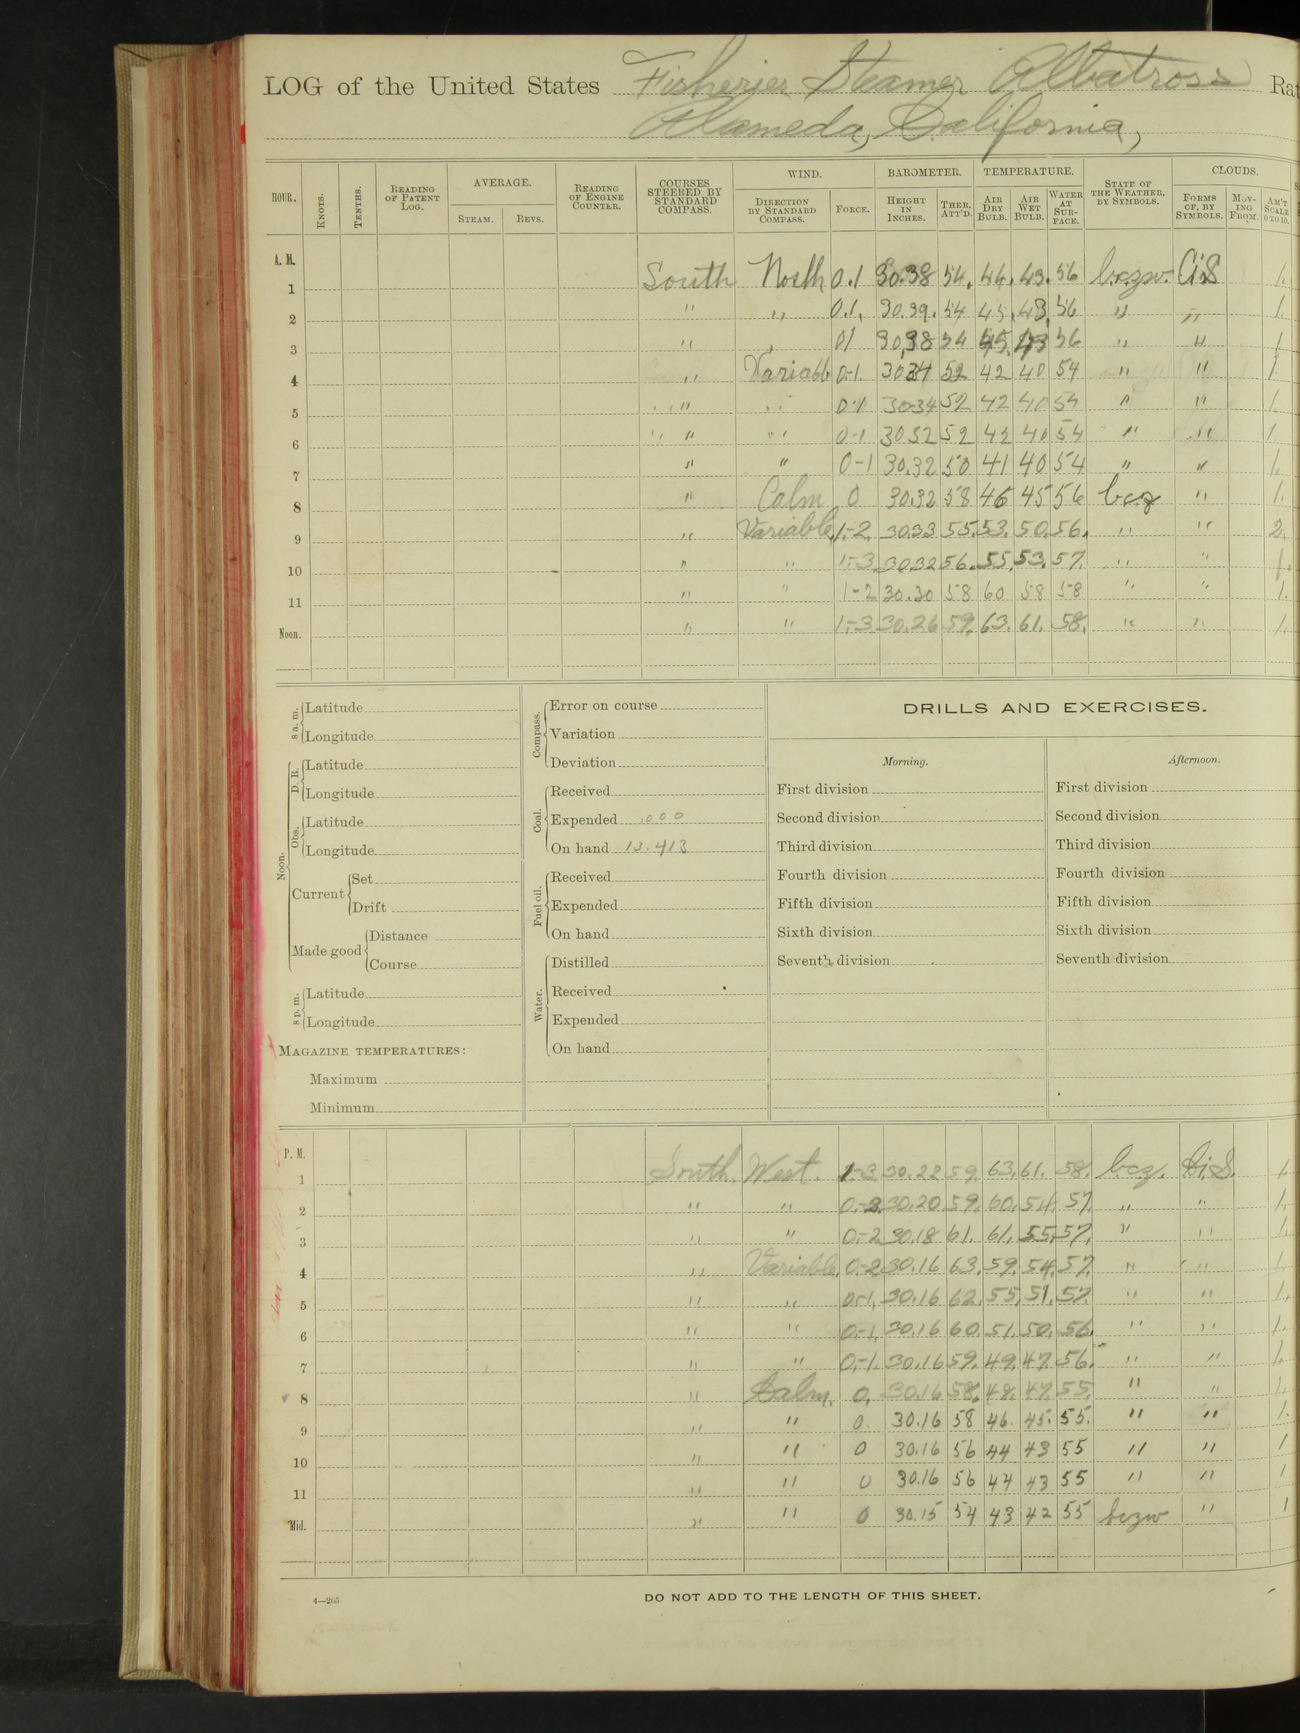 LOG of the United States Fisheries Steamer Albatross Rat
Alameda, California,
HOUR. KNOTS. TENTHS. READING OF PATENT LOG. AVERAGE. STEAM. REVS. READING OF ENGINE COUNTER. COURSES STEERED BY STANDARD COMPASS. WIND. DIRECTION BY STANDARD COMPASS. FORCE. BAROMETER. HEIGHT IN INCHES. THER. ATT'D. TEMPERATURE. AIR DRY BULB. AIR WET BULB. WATER AT SURFACE. STATE OF THE WEATHER, BY SYMBOLS. CLOUDS. FORMS OF, BY SYMBOLS. MOVING FROM. AM'T SCALE 0 TO 10.
A. M.
1 South North 0.1 30.38 54. 44. 43. 56 b.c.z.w. Ci.S 1.
2 " " 0.1. 30.39. 54 45. 43. 56 " " 1.
3 " " 01 30.38 54 45. 43 56 " " 1
4 " Variable 0-1. 30 34 52 42 40 54 " " 1.
5 " " 0-1 30.34 52 42 40 54 " " 1.
6 " " 0-1 30 32 52 42 40 54 " " 1
7 " " 0-1 30.32 50 41 40 54 " " 1.
8 " Calm 0 30.32 58 46 45 56 bcz " 1.
9 " Variable 1-2. 30.33 55. 53. 50. 56. " " 2.
10 " " 1-3. 30.32 56. 55. 53. 57. " " 1.
11 " " 1-2 30.30 58 60 58 58 " " 1.
Noon. " " 1-3 30.26 59. 63. 61. 58. " " 1.
8 a. m. Latitude
Longitude
Noon. D. R. Latitude
Longitude
Obs. Latitude
Longitude
Current Set
Drift
Made good Distance
Course
8 p. m. Latitude
Longitude
MAGAZINE TEMPERATURES:
Maximum
Minimum
Compass. Error on course
Variation
Deviation
Coal. Received
Expended .000
On hand 13.413
Fuel oil. Received
Expended
On hand
Water. Distilled
Received
Expended
On hand
DRILLS AND EXERCISES.
Morning.
First division
Second division
Third division
Fourth division
Fifth division
Sixth division
Seventh division
Afternoon.
First division
Second division
Third division
Fourth division
Fifth division
Sixth division
Seventh division
P. M.
1 South. West. 1-3 30.22 59. 63. 61. 58. bcz. Ci.S. 1.
2 " " 0-2. 30.20 59. 60. 54. 57. " " 1.
3 " " 0-2 30.18 61. 61. 55. 57. " " 1.
4 " Variable. 0-2 30.16 63. 59. 54. 57. " " 1.
5 " " 0-1. 30.16 62. 55. 51. 57. " " 1.
6 " " 0-1. 30.16 60. 51. 50. 56. " " 1.
7 " " 0-1. 30.16 59. 49. 47. 56. " " 1.
8 " Calm. 0. 30.16 58. 48. 47. 55. " " 1.
9 " " 0. 30.16 58 46. 45. 55. " " 1.
10 " " 0 30.16 56 44 43 55 " " 1
11 " " 0 30.16 56 44 43 55 " " 1
Mid. " " 0 30.15 54 43 42 55 bczw " 1
4—265
DO NOT ADD TO THE LENGTH OF THIS SHEET.